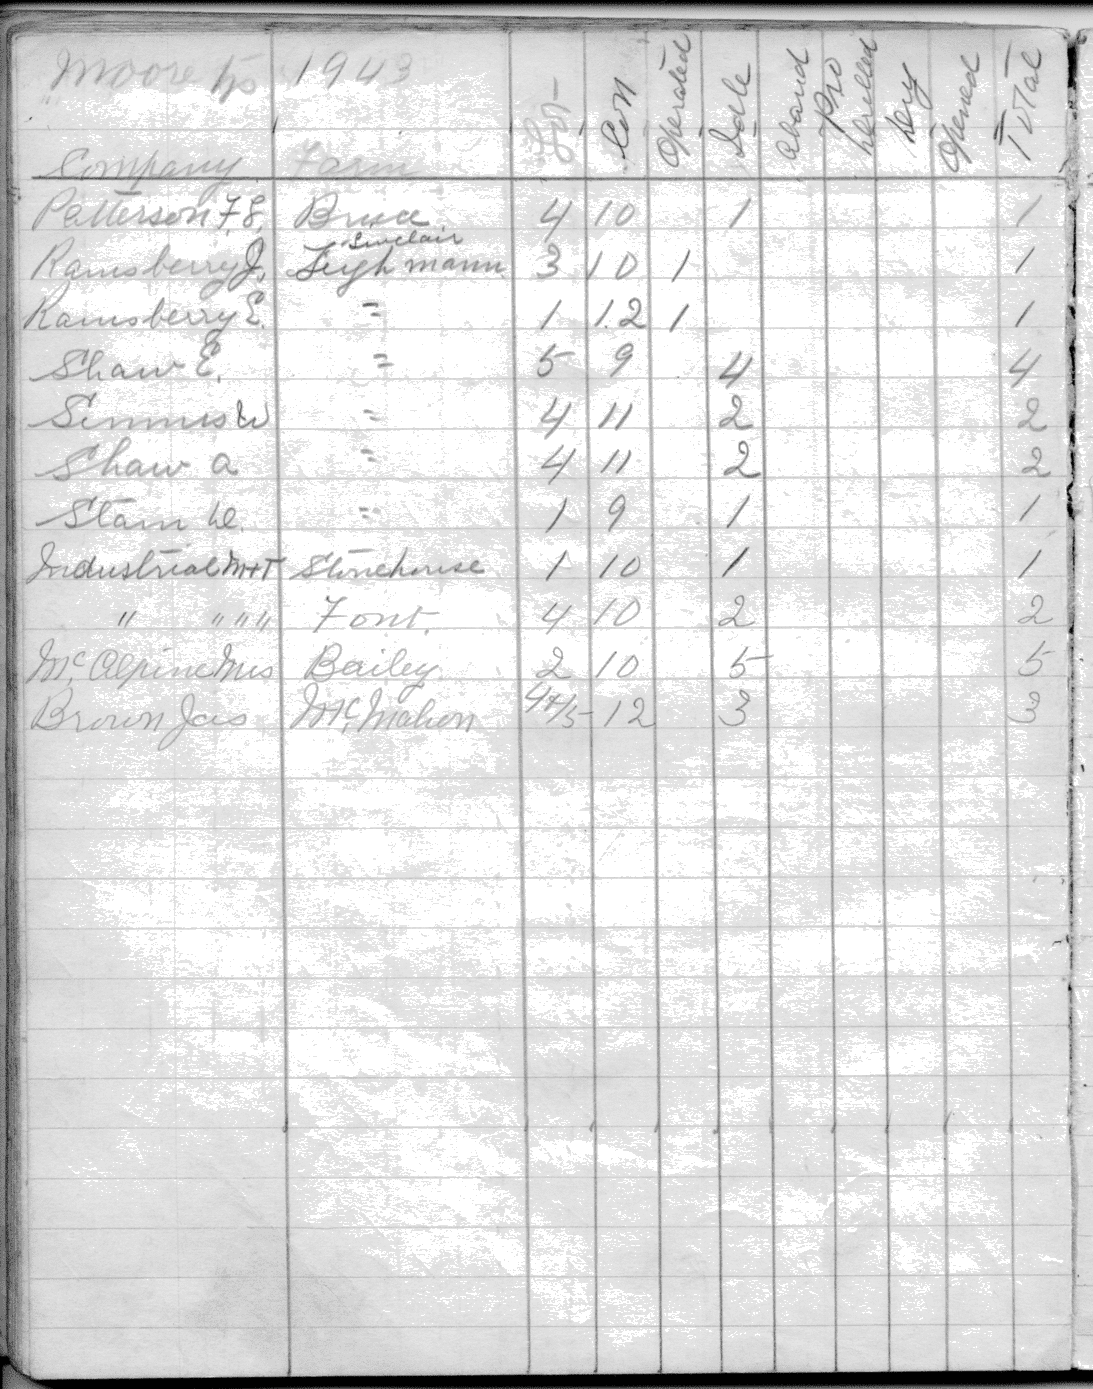 Moore Tp 1943
Company Farm Lot Con Operated Idle aband Pro Drilled Dry Opened Total
Patterson F.S. Bruce 4 10 1 1
Sinclair
Ramsberry J. Leigh mann 3 10 1 1
Ramsberry E. = 1 12 1 1
Shaw E. = 5 9 4 4
Simmis W = 4 11 2 2
Shaw a = 4 11 2 2
Stam W. = 1 9 1 1
Industrial M+T Stonehouse 1 10 1 1
" " " " Font. 4 10 2 2
Mc Alpine Mrs Bailey 2 10 5 5
Brown Jas McMahon 4+/5 12 3 3